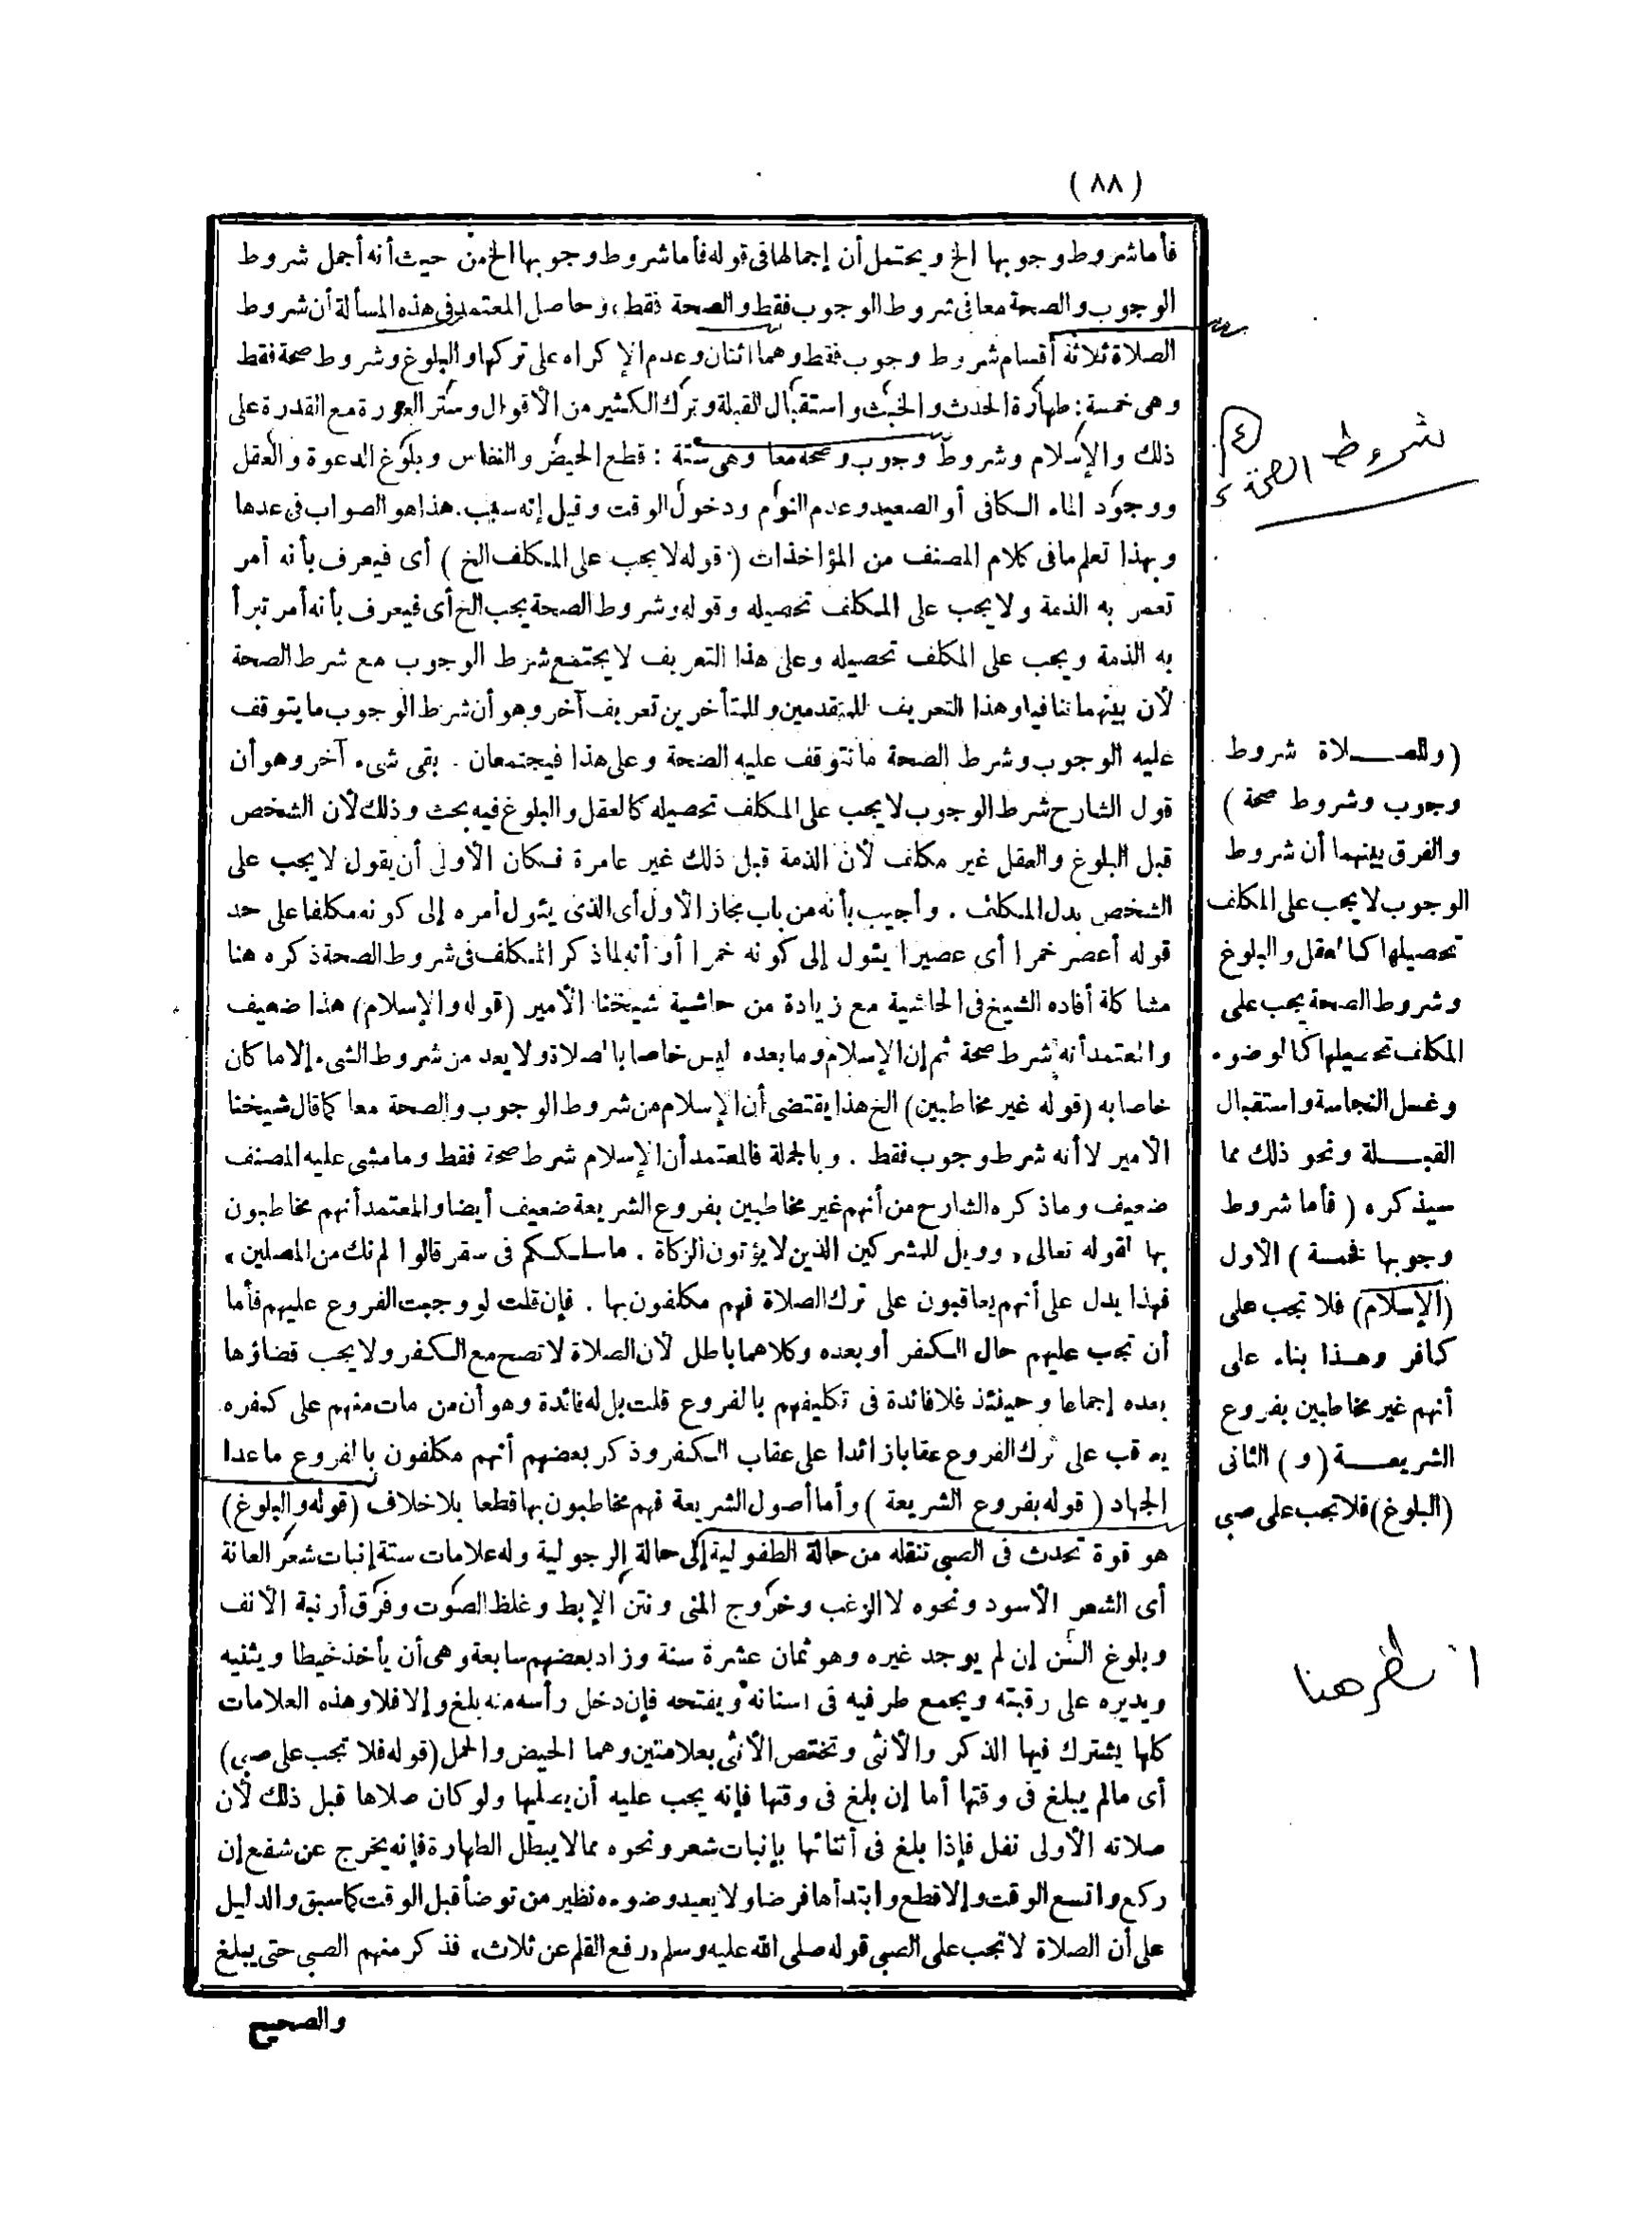 (٨٨)
فأما شروط وجوبها الخ ويحتمل أن إجمالها فى قوله فأما شروط وجوبها الخ من حيث أنه أجمل شروط
الوجوب والصحة معا فى شروط الوجوب فقط والصحة فقط، وحاصل المعتمد فى هذه المسألة أن شروط
الصلاة ثلاثة أقسام شروط وجوب فقط وهما اثنان وعدم الإكراه على تركها والبلوغ وشروط صحة فقط
وهى خمسة: طهارة الحدث والخبث واستقبال القبلة وترك الكثير من الأقوال وستر العورة مع القدرة على
ذلك والإسلام وشروط وجوب وصحة معا وهى ستة: قطع الحيض والنفاس وبلوغ الدعوة والعقل
ووجود الماء الكافى أو الصعيد وعدم النوم ودخول الوقت وقيل إنه سبب. هذا هو الصواب فى عدها
وبهذا تعلم مافى كلام المصنف من المؤاخذات (قوله لا يجب على المكلف الخ) أى فيعرف بأنه أمر
تعمر به الذمة ولا يجب على المكلف تحصيله وقوله وشروط الصحة يجب الخ أى فيعرف بأنه أمر تبرأ
به الذمة ويجب على المكلف تحصيله وعلى هذا التعريف لا يجتمع شرط الوجوب مع شرط الصحة
لأن بينهما تنافيا وهذا التعريف للمتقدمين وللمتأخرين تعريف آخر وهو أن شرط الوجوب ما يتوقف
عليه الوجوب وشرط الصحة ما تتوقف عليه الصحة وعلى هذا فيجتمعان. بقى شىء آخر وهو أن
قول الشارح شرط الوجوب لا يجب على المكلف تحصيله كالعقل والبلوغ فيه بحث وذلك لأن الشخص
قبل البلوغ والعقل غير مكلف لأن الذمة قبل ذلك غير عامرة فكان الأولى أن يقول لا يجب على
الشخص بدل المكلف. وأجيب بأنه من باب مجاز الأول أى الذى يئول أمره إلى كونه مكلفا على حد
قوله أعصر خمرا أى عصيرا يئول إلى كونه خمرا أو أنه لما ذكر المكلف فى شروط الصحة ذكره هنا
مشاكلة أفاده الشيخ فى الحاشية مع زيادة من حاشية شيخنا الأمير (قوله والإسلام) هذا ضعيف
والمعتمد أنه شرط صحة ثم إن الإسلام وما بعده ليس خاصا بالصلاة ولا يعد من شروط الشىء إلا ما كان
خاصا به (قوله غير مخاطبين) الخ هذا يقتضى أن الإسلام من شروط الوجوب والصحة معا كما قال شيخنا
الأمير لا أنه شرط وجوب فقط. وبالجملة فالمعتمد أن الإسلام شرط صحة فقط وما مشى عليه المصنف
ضعيف وما ذكره الشارح من أنهم غير مخاطبين بفروع الشريعة ضعيف أيضا والمعتمد أنهم مخاطبون
بها لقوله تعالى «وويل للمشركين الذين لا يؤتون الزكاة. ما سلككم فى سقر قالوا لم نك من المصلين»
فهذا يدل على أنهم يعاقبون على ترك الصلاة فهم مكلفون بها. فإن قلت لو وجبت الفروع عليهم فأما
أن تجب عليهم حال الكفر أو بعده وكلاهما باطل لأن الصلاة لا تصح مع الكفر ولا يجب قضاؤها
بعده إجماعا وحينئذ فلا فائدة فى تكليفهم بالفروع قلت بل له فائدة وهو أن من مات منهم على كفره
يعاقب على ترك الفروع عقابا زائدا على عقاب الكفر وذكر بعضهم أنهم مكلفون بالفروع ما عدا
الجهاد (قوله بفروع الشريعة) وأما أصول الشريعة فهم مخاطبون بها قطعا بلا خلاف (قوله والبلوغ)
هو قوة تحدث فى الصبى تنقله من حالة الطفولية إلى حالة الرجولية وله علامات ستة إنبات شعر العانة
أى الشعر الأسود ونحوه لا الزغب وخروج المنى ونتن الإبط وغلظ الصوت وفرق أرنبة الأنف
وبلوغ السن إن لم يوجد غيره وهو ثمان عشرة سنة وزاد بعضهم سابعة وهى أن يأخذ خيطا ويثنيه
ويديره على رقبته ويجمع طرفيه فى اسنانه ويفتحه فإن دخل رأسه منه بلغ وإلا فلا وهذه العلامات
كلها يشترك فيها الذكر والأنثى وتختص الأنثى بعلامتين وهما الحيض والحمل (قوله فلا تجب على صبى)
أى مالم يبلغ فى وقتها أما إن بلغ فى وقتها فإنه يجب عليه أن يصليها ولو كان صلاها قبل ذلك لأن
صلاته الأولى نفل فإذا بلغ فى أثنائها بإنبات شعر ونحوه مما لا يبطل الطهارة فإنه يخرج عن شفع إن
ركع واتسع الوقت وإلا قطع وابتدأها فرضا ولا يعيد وضوءه نظير من توضأ قبل الوقت كما سبق والدليل
على أن الصلاة لا تجب على الصبى قوله صلى الله عليه وسلم «رفع القلم عن ثلاث» فذكر منهم الصبى حتى يبلغ
والصحيح
٤
شروط الصحة
(وللصلاة شروط
وجوب وشروط صحة)
والفرق بينهما أن شروط
الوجوب لا يجب على المكلف
تحصيلها كالعقل والبلوغ
وشروط الصحة يجب على
المكلف تحصيلها كالوضوء
وغسل النجاسة واستقبال
القبلة ونحو ذلك مما
سيذكره (فأما شروط
وجوبها فخمسة) الأول
(الإسلام) فلا تجب على
كافر وهذا بناء على
أنهم غير مخاطبين بفروع
الشريعة (و) الثانى
(البلوغ) فلا تجب على صبى
انظر هنا